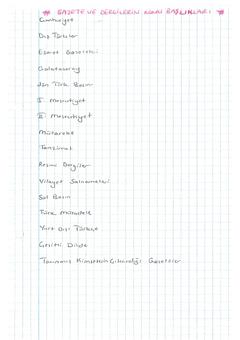 * GAZETE VE DERGİLERİN KONU BAŞLIKLARI *
Cumhuriyet
Dış Türkler
Esaret Gazeteleri
Galatasaray
Jön Türk Basını
I. Meşrutiyet
II. Meşrutiyet
Mütareke
Tanzimat
Resmi Dergiler
Vilayet Salnameleri
Sol Basın
Türk Mücadele
Yurt Dışı Türkçe
Çeşitli Dilde
Tanınmış Kimselerin Çıkardığı Gazeteler